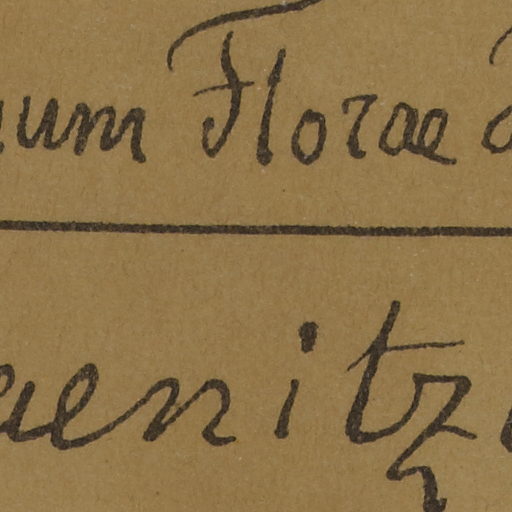 um Florae
aenitz